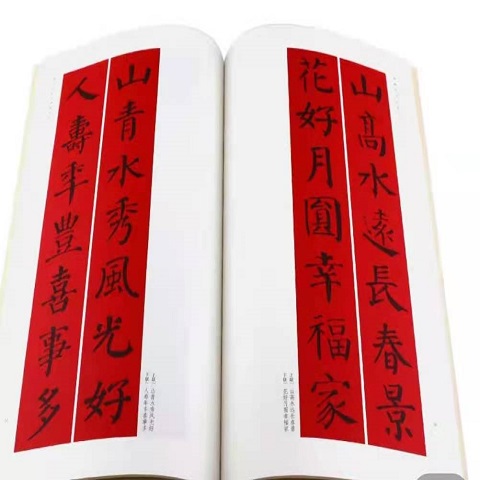 山高水遠長春景
花好月圓幸福家
山青水秀風光好
人壽年豐喜事多